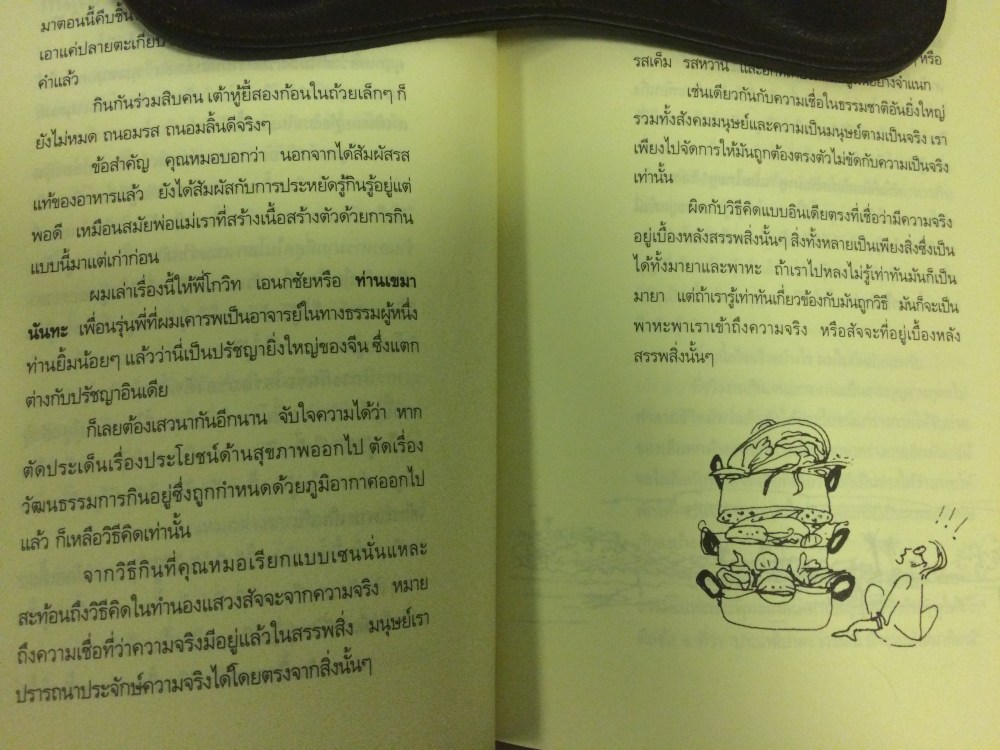 มาตอนนี้คีบชิ้น
เอาแค่ปลายตะเกียบ
คำแล้ว
กินกันร่วมสิบคน เต้าหู้ยี้สองก้อนในถ้วยเล็กๆ ก็
ยังไม่หมด ถนอมรส ถนอมลิ้นดีจริงๆ
ข้อสำคัญ คุณหมอบอกว่า นอกจากได้สัมผัสรส
แท้ของอาหารแล้ว ยังได้สัมผัสกับการประหยัดรู้กินรู้อยู่แต่
พอดี เหมือนสมัยพ่อแม่เราที่สร้างเนื้อสร้างตัวด้วยการกิน
แบบนี้มาแต่เก่าก่อน
ผมเล่าเรื่องนี้ให้พี่โกวิท เอนกชัยหรือ ท่านเขมา
นันทะ เพื่อนรุ่นพี่ที่ผมเคารพเป็นอาจารย์ในทางธรรมผู้หนึ่ง
ท่านยิ้มน้อยๆ แล้วว่านี่เป็นปรัชญายิ่งใหญ่ของจีน ซึ่งแตก
ต่างกับปรัชญาอินเดีย
ก็เลยต้องเสวนากันอีกนาน จับใจความได้ว่า หาก
ตัดประเด็นเรื่องประโยชน์ด้านสุขภาพออกไป ตัดเรื่อง
วัฒนธรรมการกินอยู่ซึ่งถูกกำหนดด้วยภูมิอากาศออกไป
แล้ว ก็เหลือวิธีคิดเท่านั้น
จากวิธีกินที่คุณหมอเรียกแบบเซนนั่นแหละ
สะท้อนถึงวิธีคิดในทำนองแสวงสัจจะจากความจริง หมาย
ถึงความเชื่อที่ว่าความจริงมีอยู่แล้วในสรรพสิ่ง มนุษย์เรา
ปรารถนาประจักษ์ความจริงได้โดยตรงจากสิ่งนั้นๆ
หรือ
รสเค็ม รสหวาน และ
อย่างจำแนก
เช่นเดียวกันกับความเชื่อในธรรมชาติอันยิ่งใหญ่
รวมทั้งสังคมมนุษย์และความเป็นมนุษย์ตามเป็นจริง เรา
เพียงไปจัดการให้มันถูกต้องตรงตัวไม่ขัดกับความเป็นจริง
เท่านั้น
ผิดกับวิธีคิดแบบอินเดียตรงที่เชื่อว่ามีความจริง
อยู่เบื้องหลังสรรพสิ่งนั้นๆ สิ่งทั้งหลายเป็นเพียงสิ่งซึ่งเป็น
ได้ทั้งมายาและพาหะ ถ้าเราไปหลงไม่รู้เท่าทันมันก็เป็น
มายา แต่ถ้าเรารู้เท่าทันเกี่ยวข้องกับมันถูกวิธี มันก็จะเป็น
พาหะพาเราเข้าถึงความจริง หรือสัจจะที่อยู่เบื้องหลัง
สรรพสิ่งนั้นๆ
!!!